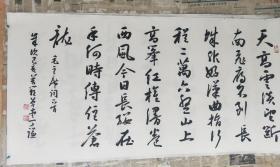 天高雲淡望斷
南飛雁不到長
城非好漢屈指行
程二萬六盤山上
高峯紅旗漫卷
西風今日長纓在
手何時縛住蒼
龍
毛主席詞一首